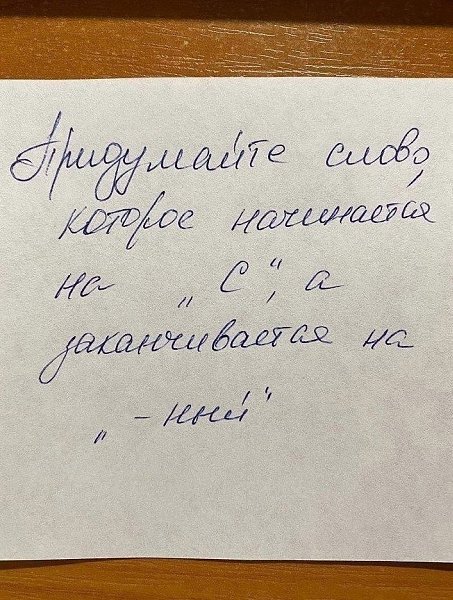 Придумайте слово,
которое начинается
на „С“, а
заканчивается на
„-ный“